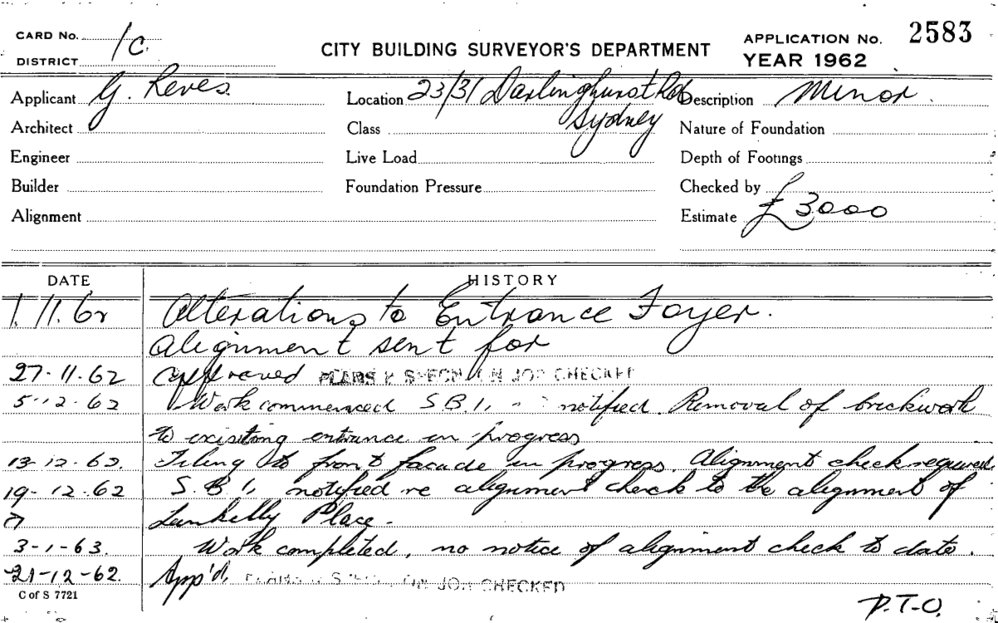 CARD No. 1C. CITY BUILDING SURVEYOR'S DEPARTMENT APPLICATION No. 2583
DISTRICT YEAR 1962
Applicant G. Reves. Location 23/31 Darlinghurst Rd Description Minor.
Architect Class Sydney Nature of Foundation
Engineer Live Load Depth of Footings
Builder Foundation Pressure Checked by
Alignment Estimate £3000
DATE HISTORY
1.11.62 Alterations to Entrance Foyer.
Alignment sent for
27-11-62 approved PLANS & SPECN ON JOB CHECKED
5-12-62 Work commenced S.B.I. notified. Removal of brickwork
to existing entrance in progress
13-12-62. Tiling to front facade in progress. Alignment check required
19-12-62 S.B.I. notified re alignment check to the alignment of
Lankelly Place.
3-1-63. Work completed, no notice of alignment check to date.
21-12-62. App'd, PLANS & SPECN ON JOB CHECKED
C of S 7721
P.T.O.